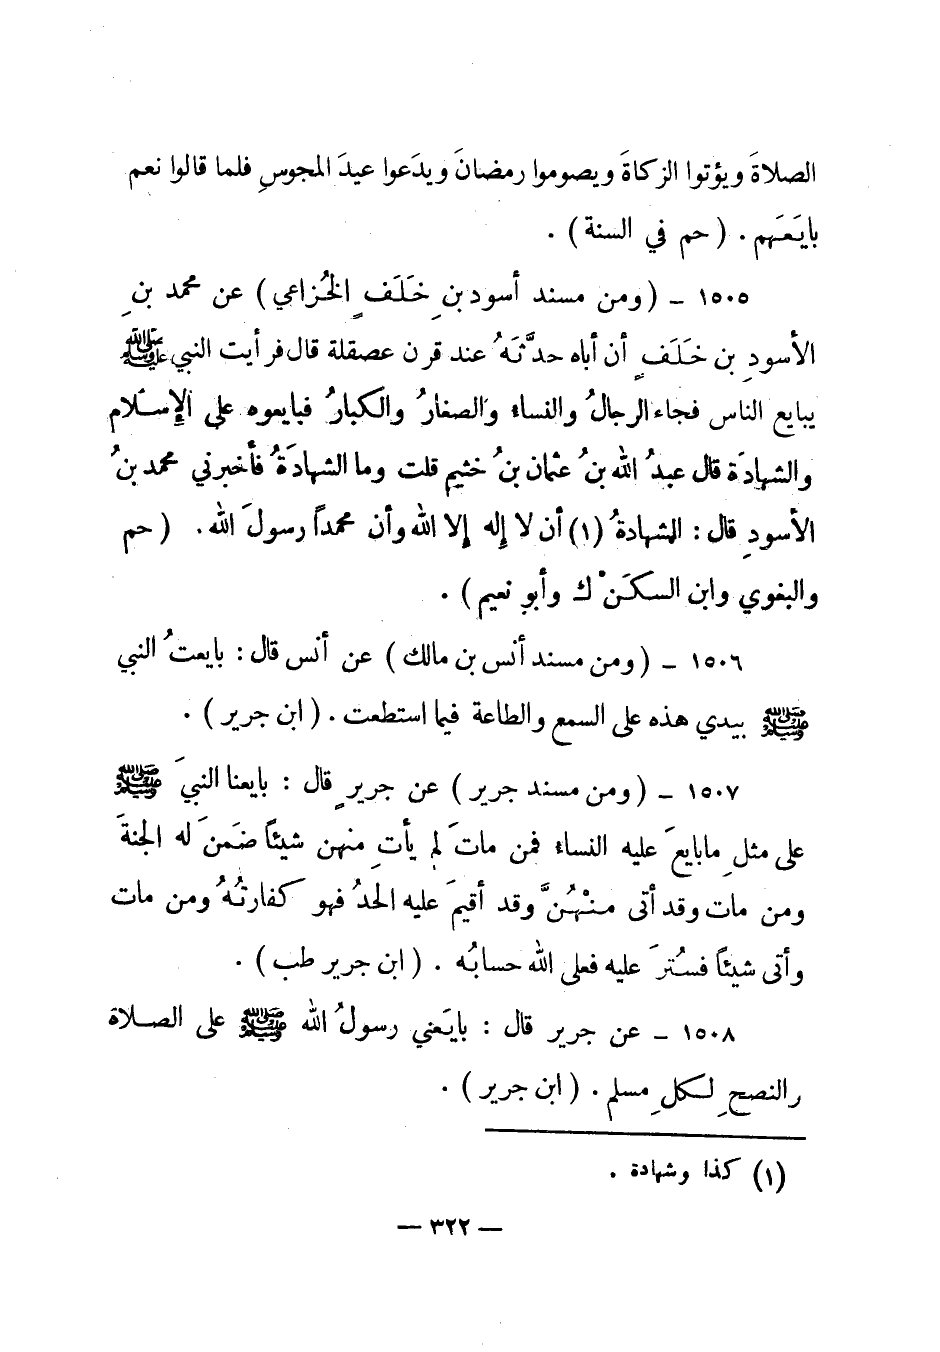 الصلاةَ ويؤتوا الزكاةَ ويصوموا رمضانَ ويدَعوا عيدَ المجوسِ فلما قالوا نعم
بايَعَهم . ( حم في السنة ) .
١٥٠٥ ـ ( ومن مسند أسود بنِ خَلَفٍ الخُزاعي ) عن محمد بنِ
الأسودِ بن خَلَفٍ أن أباه حدَّثَهُ عند قرن عصقلة قال فرأيت النبي ﷺ
يبايع الناس فجاء الرجالُ والنساء والصغارُ والكبارُ فبايعوه على الإِسلام
والشهادَة قال عبدُ الله بنُ عثمان بنُ خثيم قلت وما الشهادَةُ فأخبرني محمد بنُ
الأسودِ قال : الشهادةُ (١) أن لا إِله إِلا الله وأن محمداً رسولَ الله . ( حم
والبغوي وابن السكَنْ ك وأبو نعيم ) .
١٥٠٦ ـ ( ومن مسند أنس بن مالك ) عن أنس قال : بايعتُ النبي
ﷺ بيدي هذه على السمع والطاعة فيما استطعت . ( ابن جرير ) .
١٥٠٧ ـ ( ومن مسند جرير ) عن جريرٍ قال : بايعنا النبيَ ﷺ
على مثلِ ما بايعَ عليه النساء فمن ماتَ لم يأتِ منهن شيئاً ضَمنَ له الجنةَ
ومن مات وقد أتى منْهُنَّ وقد أقيمَ عليه الحدُ فهو كفارتُهُ ومن مات
وأتى شيئاً فسُترَ عليه فعلى الله حسابُه . ( ابن جرير طب ) .
١٥٠٨ ـ عن جرير قال : بايَعني رسولُ الله ﷺ على الصلاة
والنصحِ لكلِ مسلم . ( ابن جرير ) .
(١) كذا وشهادة .
— ٣٢٢ —